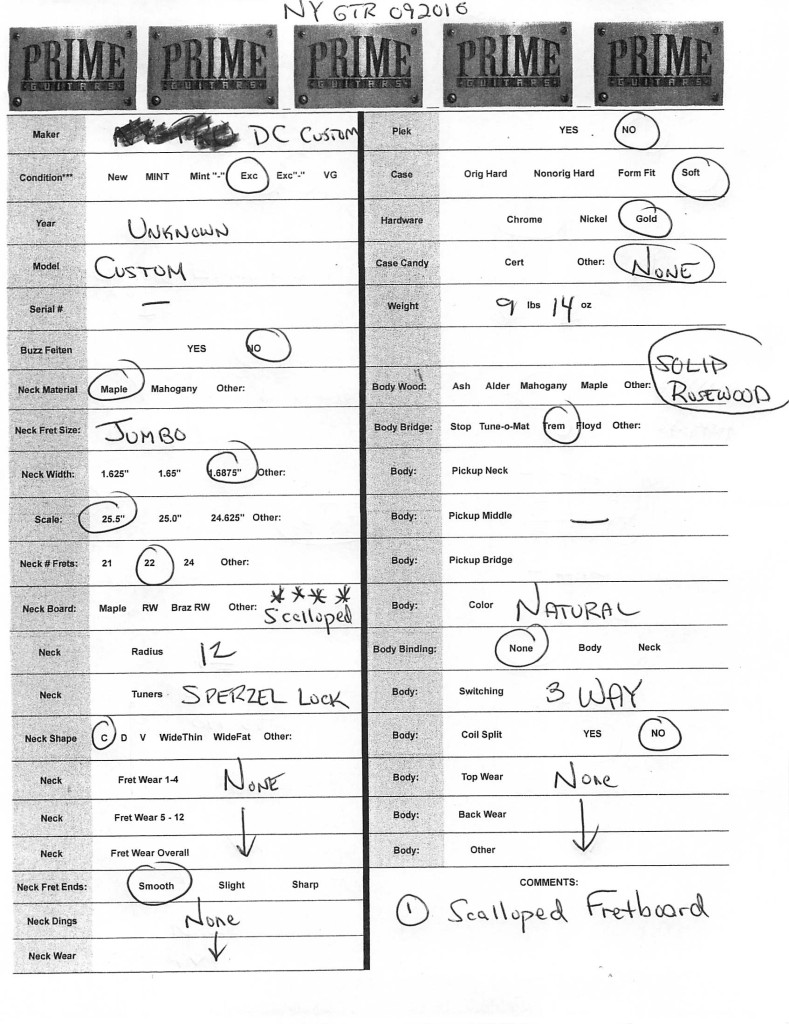 NY GTR 092016
PRIME PRIME PRIME PRIME PRIME
GUITARS GUITARS GUITARS GUITARS GUITARS
Maker DC CUSTOM
Condition*** New MINT Mint "-" Exc Exc"-" VG
Year UNKNOWN
Model CUSTOM
Serial # —
Buzz Feiten YES NO
Neck Material Maple Mahogany Other:
Neck Fret Size: JUMBO
Neck Width: 1.625" 1.65" 1.6875" Other:
Scale: 25.5" 25.0" 24.625" Other:
Neck # Frets: 21 22 24 Other:
Neck Board: Maple RW Braz RW Other: **** Scalloped
Neck Radius 12
Neck Tuners SPERZEL LOCK
Neck Shape C D V WideThin WideFat Other:
Neck Fret Wear 1-4 NONE
Neck Fret Wear 5 - 12
Neck Fret Wear Overall
Neck Fret Ends: Smooth Slight Sharp
Neck Dings None
Neck Wear
Plek YES NO
Case Orig Hard Nonorig Hard Form Fit Soft
Hardware Chrome Nickel Gold
Case Candy Cert Other: NONE
Weight 9 lbs 14 oz
Body Wood: Ash Alder Mahogany Maple Other: SOLID ROSEWOOD
Body Bridge: Stop Tune-o-Mat Trem Floyd Other:
Body: Pickup Neck
Body: Pickup Middle —
Body: Pickup Bridge
Body: Color NATURAL
Body Binding: None Body Neck
Body: Switching 3 WAY
Body: Coil Split YES NO
Body: Top Wear None
Body: Back Wear
Body: Other
COMMENTS:
1 Scalloped Fretboard